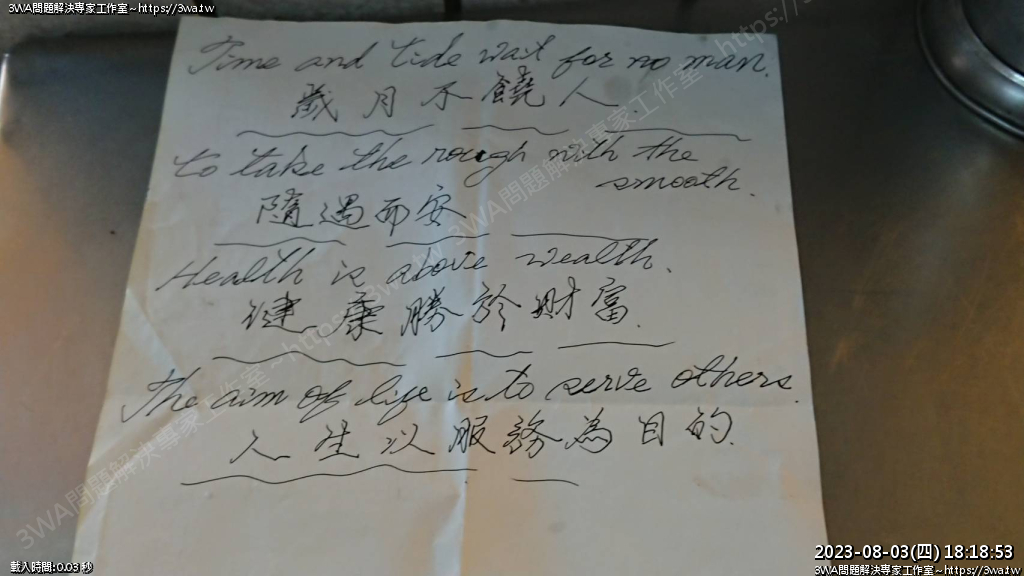 3WA問題解決專家工作室~https://3wa.tw
3WA問題解決專家工作室~https://3wa.tw
Time and tide wait for no man.
歲月不饒人.
to take the rough with the
smooth.
隨遇而安
Health is above wealth.
健康勝於財富.
the aim of life is to serve others.
人生以服務為目的.
載入時間:0.03 秒
2023-08-03(四) 18:18:53
3WA問題解決專家工作室~https://3wa.tw